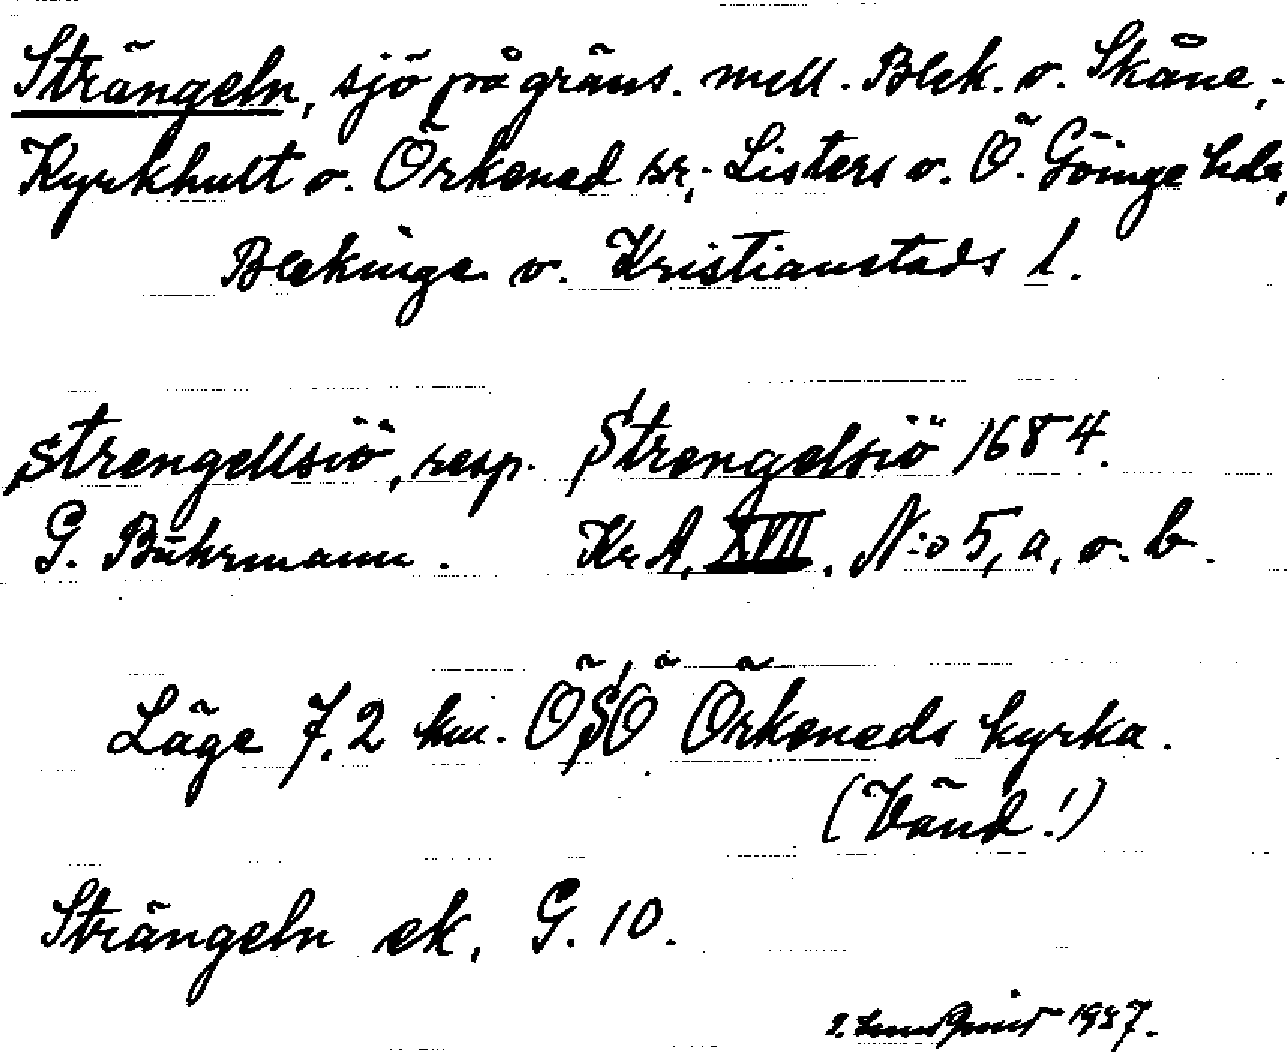 Strängeln, sjö på gräns. mell. Blek. o. Skåne,-
Kyrkhult o. Örkened sr,- Listers o. Ö. Göinge hdr,
Blekinge o. Kristianstads l.
Strengellsiö, resp. Strengelsiö 1684.
G. Buhrmann. Kr A, XVII, N:o 5, a, o. b.
Läge 7,2 km. ÖSÖ Örkeneds kyrka.
(Vänd!)
Strängeln ek. G. 10.
1937.